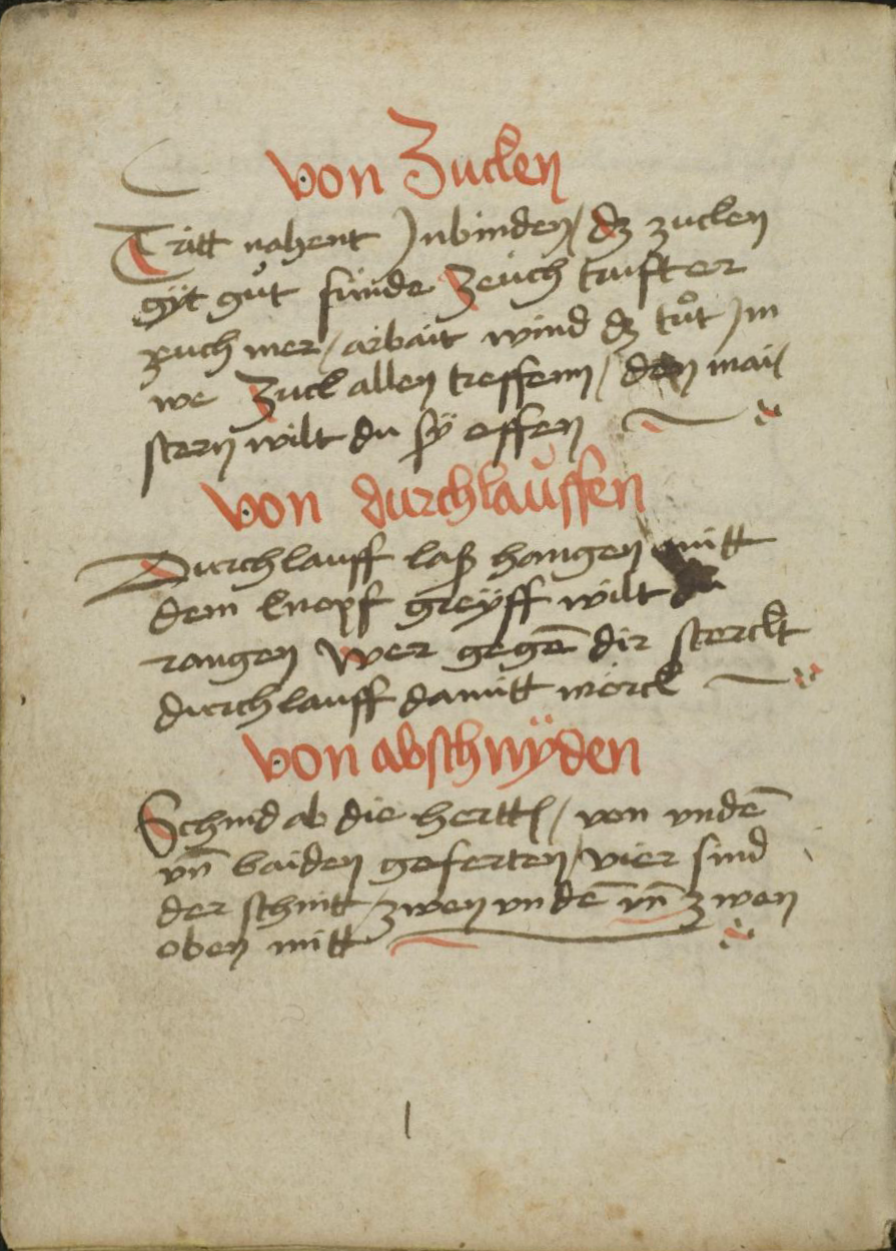 von Zucken
Tritt nahent Jn binden / dz zucken
gyt gůt fünde Zeuch trifft er
zuch mer / arbait wind dz tůt Jm
we Zuck allen treffenn / den mai/
stern wilt du sÿ effen
von durchlauffen
Durchlauff laß hangen mitt
dem knopf greÿff wilt du
rangen Wer gegē dir sterckt
durchlauff damitt mörck
von abschnÿden
Schnid ab die hertt / von undē
vn̄ baiden geferten / vier sind
der schnitt / zwen undē vn̄ zwen
oben mitt